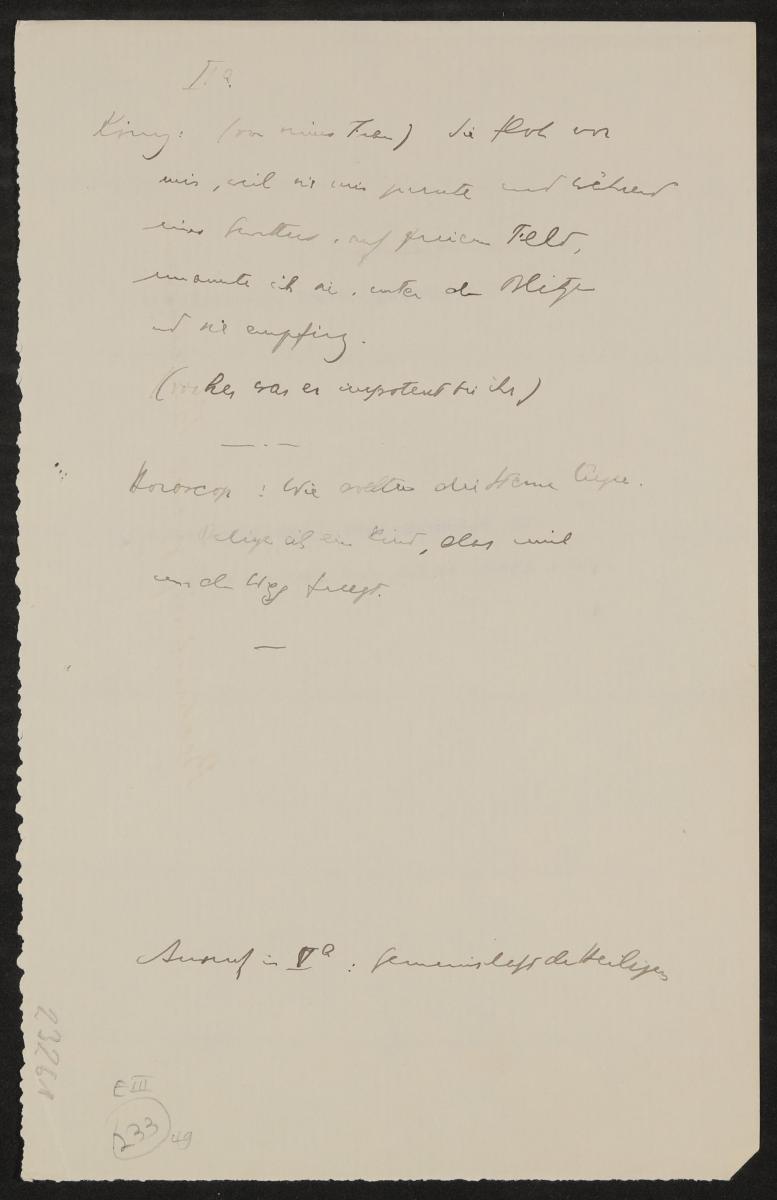 I. a.
König: (von seiner Frau) sie floh vor
mir, weil sie mir und während
eines Gewitters, auf freiem Feld,
umarmte ich sie, unter den Blitzen
und sie empfing.
(vorher war er impotent bei ihr)
— . —
Horoscop: Wie sollten die Sterne lügen.
ein Kind, das mich
um den Weg fragt.
—
Ausruf in V a: Gemeinschaft der Heiligen
23261
E III
233 49